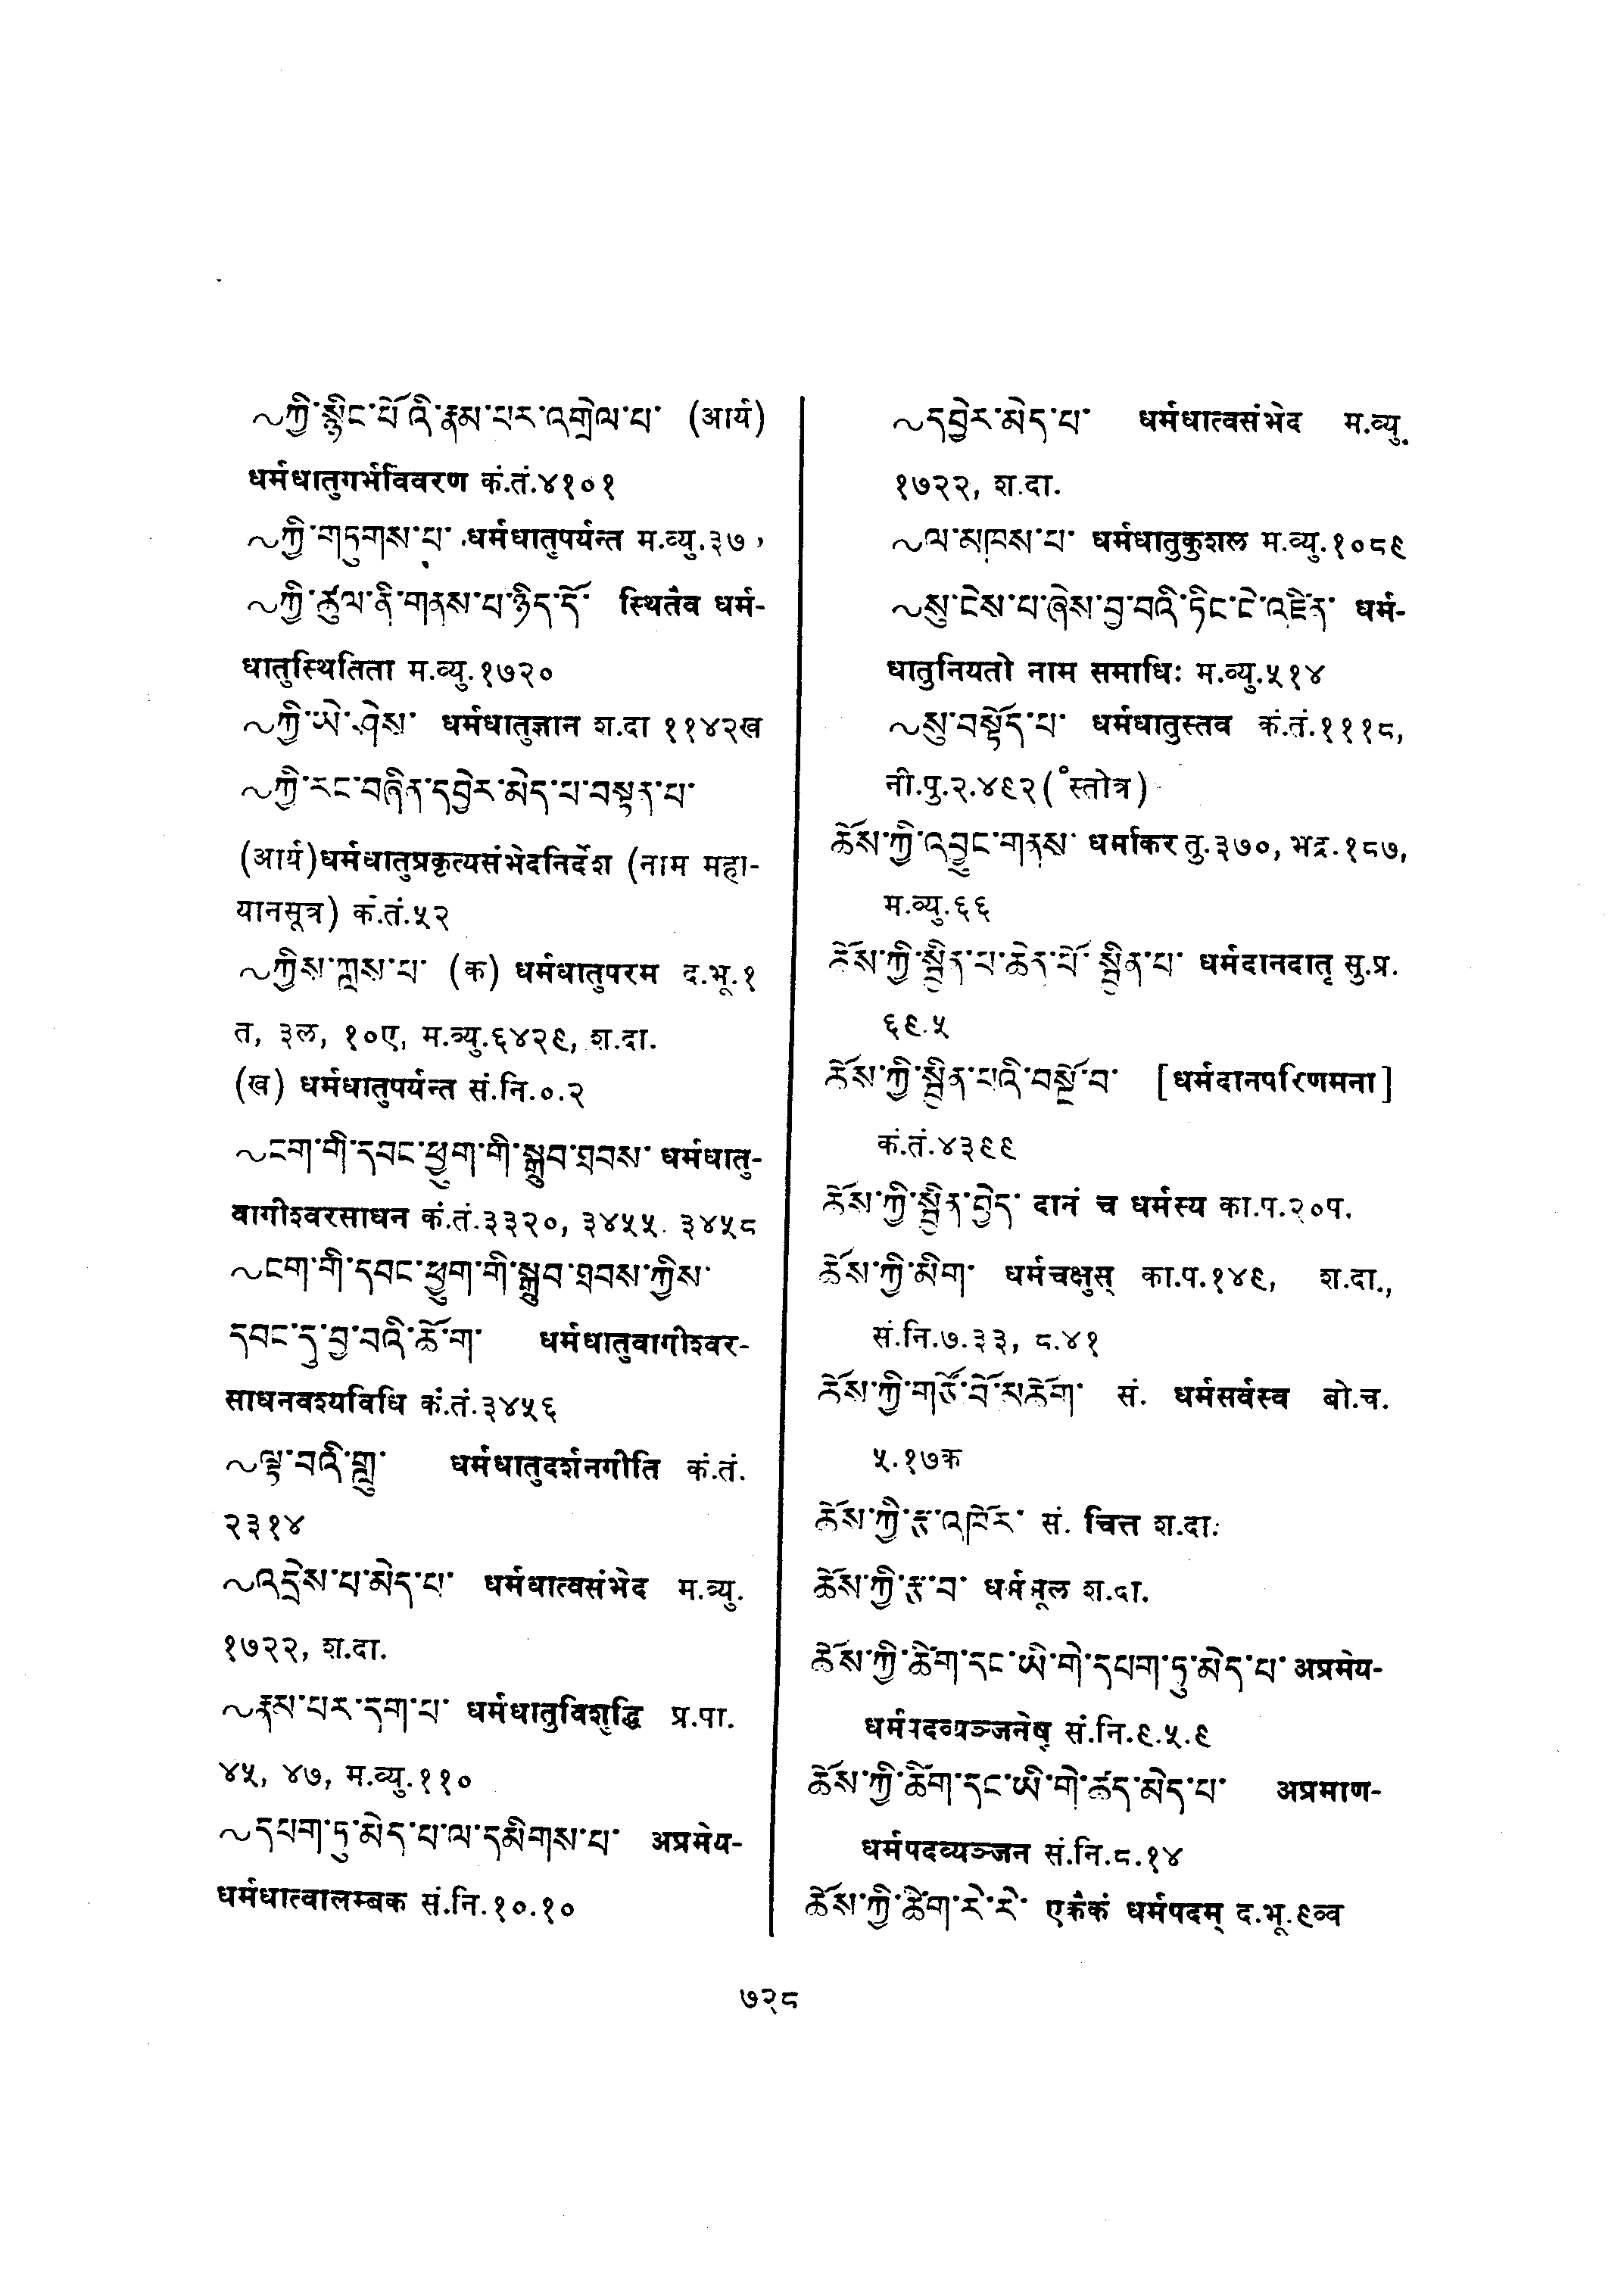 ~ཀྱི་སྙིང་པོའི་རྣམ་པར་འགྲེལ་པ་ (आर्य)
धर्मधातुगर्भविवरण कं.तं.४१०१
~ཀྱི་གཏུགས་པ་ धर्मधातुपर्यन्त म.व्यु.३७
~ཀྱི་ཚུལ་ནི་གནས་པ་ཉིད་དོ་ स्थितैव धर्म-
धातुस्थितिता म.व्यु.१७२०
~ཀྱི་ཡེ་ཤེས་ धर्मधातुज्ञान श.दा ११४२ख
~ཀྱི་རང་བཞིན་དབྱེར་མེད་པ་བསྟན་པ་
(आर्य)धर्मधातुप्रकृत्यसंभेदनिर्देश (नाम महा-
यानसूत्र) कं.तं.५२
~ཀྱིས་ཀླས་པ་ (क) धर्मधातुपरम द.भू.१
त, ३ल, १०ए, म.व्यु.६४२९, श.दा.
(ख) धर्मधातुपर्यन्त सं.नि.०.२
~ངག་གི་དབང་ཕྱུག་གི་སྒྲུབ་ཐབས་ धर्मधातु-
वागीश्वरसाधन कं.तं.३३२०, ३४५५. ३४५८
~ངག་གི་དབང་ཕྱུག་གི་སྒྲུབ་ཐབས་ཀྱིས་
དབང་དུ་བྱ་བའི་ཆོ་ག་ धर्मधातुवागीश्वर-
साधनवश्यविधि कं.तं.३४५६
~ལྟ་བའི་གླུ་ धर्मधातुदर्शनगीति कं.तं.
२३१४
~འདྲེས་པ་མེད་པ་ धर्मधात्वसंभेद म.व्यु.
१७२२, श.दा.
~རྣམ་པར་དག་པ་ धर्मधातुविशुद्धि प्र.पा.
४५, ४७, म.व्यु.११०
~དཔག་ཏུ་མེད་པ་ལ་དམིགས་པ་ अप्रमेय-
धर्मधात्वालम्बक सं.नि.१०.१०
~དབྱེར་མེད་པ་ धर्मधात्वसंभेद म.व्यु.
१७२२, श.दा.
~ལ་མཁས་པ་ धर्मधातुकुशल म.व्यु.१०८९
~སུ་ངེས་པ་ཞེས་བྱ་བའི་ཏིང་ངེ་འཛིན་ धर्म-
धातुनियतो नाम समाधिः म.व्यु.५१४
~སུ་བསྟོད་པ་ धर्मधातुस्तव कं.तं.१११८,
नी.पु.२.४९२(॰स्तोत्र)
ཆོས་ཀྱི་འབྱུང་གནས་ धर्माकर तु.३७०, भद्र.१८७,
म.व्यु.६६
ཆོས་ཀྱི་སྦྱིན་པ་ཆེན་པོ་སྦྱིན་པ་ धर्मदानदातृ सु.प्र.
६९.५
ཆོས་ཀྱི་སྦྱིན་པའི་བསྔོ་བ་ [धर्मदानपरिणमना]
कं.तं.४३९९
ཆོས་ཀྱི་སྦྱིན་བྱེད་ दानं च धर्मस्य का.प.२०प.
ཆོས་ཀྱི་མིག་ धर्मचक्षुस् का.प.१४९, श.दा.,
सं.नि.७.३३, ८.४१
ཆོས་ཀྱི་གཙོ་བོ་མཆོག་ सं. धर्मसर्वस्व बो.च.
५.१७क
ཆོས་ཀྱི་རྩ་འཁོར་ सं. चित्त श.दा.
ཆོས་ཀྱི་རྩ་བ་ धर्ममूल श.दा.
ཆོས་ཀྱི་ཚིག་དང་ཡི་གེ་དཔག་ཏུ་མེད་པ་ अप्रमेय-
धर्मपदव्यञ्जनेषु सं.नि.९.५.९
ཆོས་ཀྱི་ཚིག་དང་ཡི་གེ་ཚད་མེད་པ་ अप्रमाण-
धर्मपदव्यञ्जन सं.नि.८.१४
ཆོས་ཀྱི་ཚིག་རེ་རེ་ एकैकं धर्मपदम् द.भू.९व्व
७२८